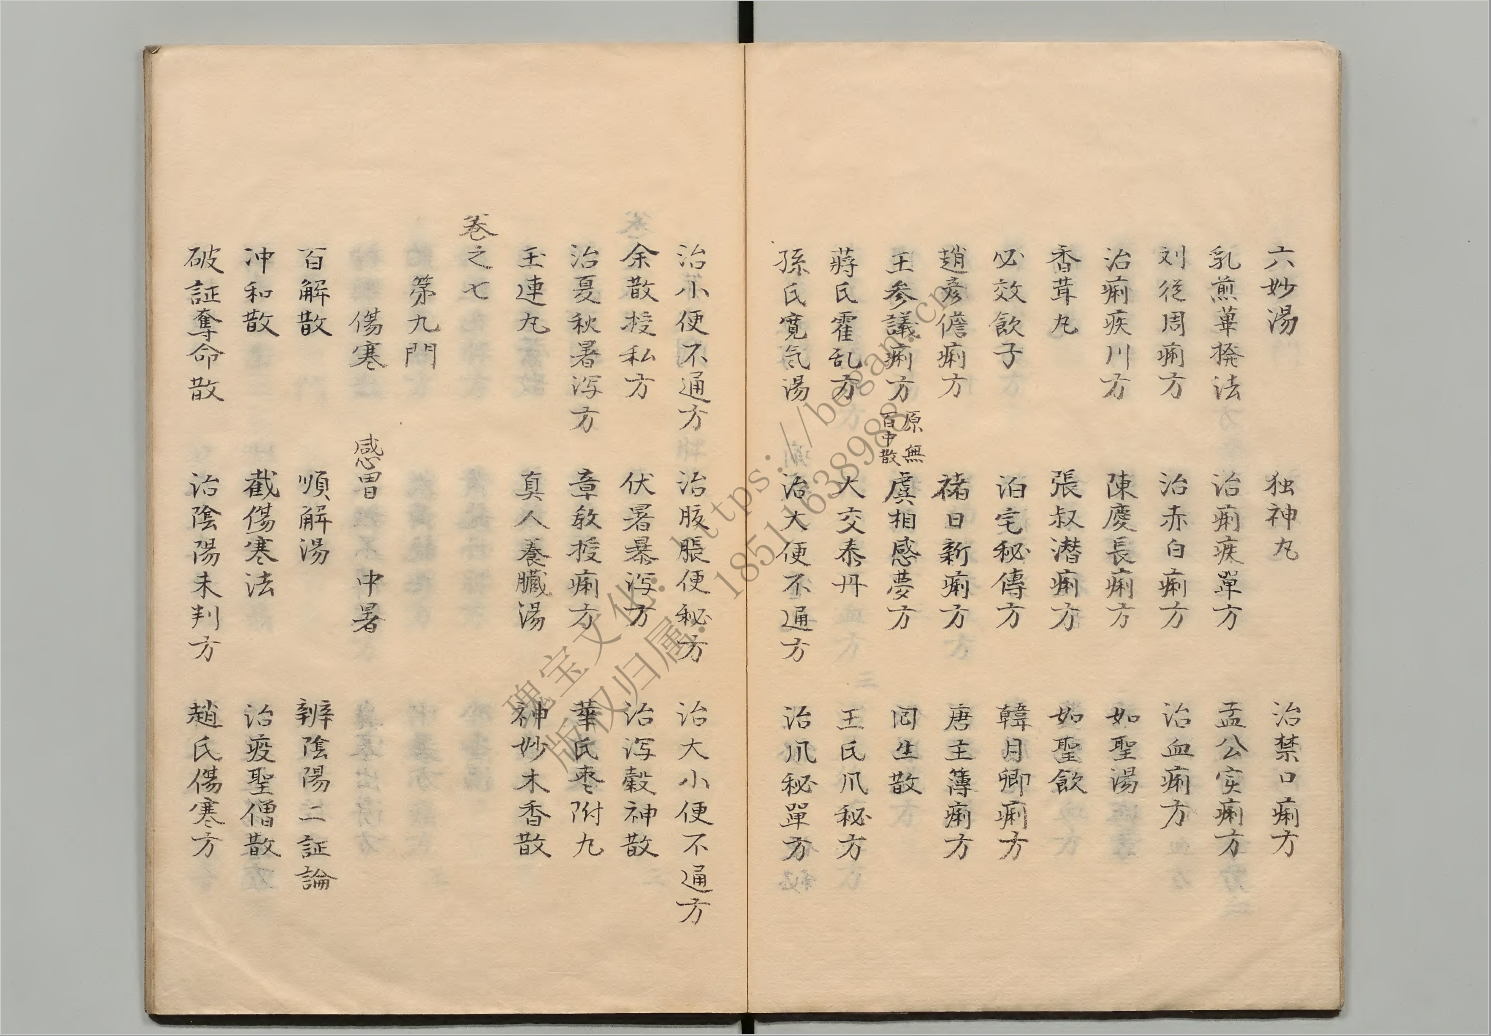 六妙湯　独神丸　治禁口痢方
乳煎蓽撥法　治痢疾單方　孟公实痢方
刘从周痢方　治赤白痢方　治血痢方
治痢疾川方　陳慶長痢方　如聖湯
香茸丸　張叔潜痢方　如聖飲
必效飲子　泊宅秘傳方　韓月卿痢方
趙彦儋痢方　褚日新痢方　唐主簿痢方
王參議痢方　原無百中散　虞相感夢方　囘生散
蔣氏霍乱方　大交泰丹　王氏爪秘方
孫氏寬気湯　治大便不通方　治爪秘單方
治小便不通方　治腹脹便秘方　治大小便不通方
余散授私方　伏暑暴泻方　治泻穀神散
治憂秋暑泻方　章教授痢方　華氏棗附丸
玉連丸　真人養臟湯　神妙木香散
卷之七
第九門
傷寒　感冒　中暑
百解散　順解湯　辨陰陽二証論
冲和散　截傷寒法　治疫聖僧散
破証奪命散　治陰陽未判方　趙氏傷寒方
瑰宝文化：https://bogam.cn
版权归属：18511638988